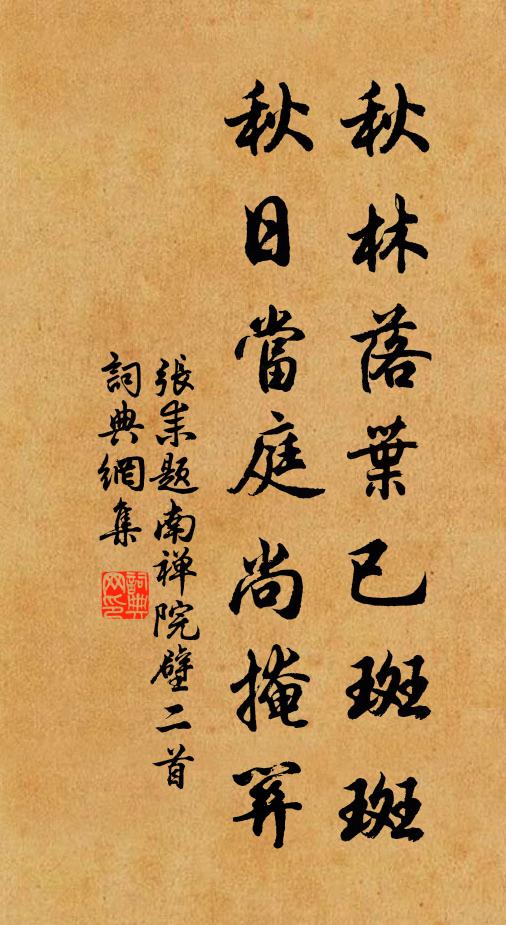 秋林落葉已斑斑
秋日當庭尚掩關
張耒题南禅院壁二首
詞典網集
詞典网印